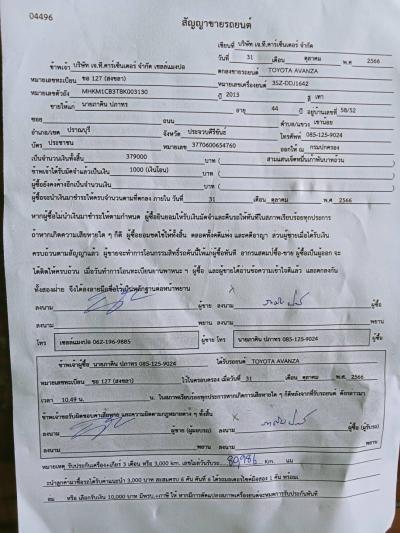 04496
สัญญาขายรถยนต์
เขียนที่ บริษัท เจ.ที.คาร์เซ็นเตอร์ จำกัด
วันที่ 31 เดือน ตุลาคม พ.ศ 2566
ข้าพเจ้า บริษัท เจ.ที.คาร์เซ็นเตอร์ จำกัด เซลล์แมงปอ ตกลงขายรถยนต์ TOYOTA AVANZA
หมายเลขทะเบียน ขอ 127 (สงขลา) หมายเลขเครื่องยนต์ 3SZ-DDJ1642
หมายเลขตัวถัง MHKM1CB3TBK003130 ปี 2013 สี เทา
ขายให้แก่ นายภาคิน ปภาทร อายุ 44 ปี อยู่บ้านเลขที่ 58/52
ซอย ถนน ตำบล/แขวง เขาน้อย
อำเภอ/เขต ปราณบุรี จังหวัด ประจวบคีรีขันธ์ โทรศัพท์ 085-125-9024
บัตร ประชาชน หมายเลข 3770600654760 ออกให้ ณ กรมปกครอง
เป็นจำนวนเงินทั้งสิ้น 379000 บาท ( สามแสนเจ็ดหมื่นเก้าพันบาทถ้วน )
ข้าพเจ้าได้รับมัดจำแล้วเป็นเงิน 1000 (เงินโอน) บาท ( )
ผู้ซื้อยังคงค้างอีกเป็นจำนวนเงิน บาท ( )
ผู้ซื้อจะนำเงินมาชำระให้ครบจำนวนตามที่ตกลง ภายใน วันที่ 31 เดือน ตุลาคม พ.ศ 2566
หากผู้ซื้อไม่นำเงินมาชำระให้ตามกำหนด ผู้ซื้อยินยอมให้ริบเงินมัดจำและคืนรถให้ทันทีในสภาพเรียบร้อยทุกประการ
ถ้าหากเกิดความเสียหายใด ๆ ก็ดี ผู้ซื้อยอมชดใช้ให้ทั้งสิ้น ตลอดทั้งคดีแพ่ง และคดีอาญา ส่วนผู้ขายเมื่อได้รับเงิน
ครบถ้วนตามสัญญาแล้ว ผู้ขายจะทำการโอนกรรมสิทธิ์รถคันนี้ให้แก่ผู้ซื้อทันที
ได้คิดให้ครบถ้วน เมื่อวันทำการโอนทะเบียน ผู้ซื้อ และผู้ขายได้อ่านข้อความเข้าใจดีแล้ว และตกลงกัน
ทั้งสองฝ่าย จึงได้ลงลายมือชื่อไว้เป็นหลักฐานต่อหน้าพยาน
ลงนาม ผู้ขาย ลงนาม ผู้ซื้อ
ลงนาม พยาน ลงนาม พยาน
โทร เซลล์แมงปอ 062-196-9885 ผู้ขาย โทร นายภาคิน ปภาทร 085-125-9024 ผู้ซื้อ
ข้าพเจ้าผู้ซื้อ นายภาคิน ปภาทร 085-125-9024 ได้รับรถยนต์ TOYOTA AVANZA
หมายเลขทะเบียน ขอ 127 (สงขลา) ไว้ในครอบครอง เมื่อวันที่ 31 เดือน ตุลาคม พ.ศ. 2566
เวลา 10.49 น. ในสภาพเรียบร้อยทุกประการหากเกิดการเสียหายใด ๆ ก็ดีหลังจากที่รับรถยนต์
ข้าพเจ้าขอรับผิดชอบความเสียหาย และความผิดตามกฎหมายต่าง ๆ ทั้งสิ้น
ลงนาม ผู้ขาย (ผู้มอบรถ) ลงนาม ผู้ซื้อ (ผู้รับรถ)
ลงนาม พยาน ลงนาม พยาน
หมายเหตุ รับประกันเครื่อง+เกียร์ 3 เดือน หรือ 3,000 km. เลขไมล์วันรับรถ 80986 Km. ผม
แนะนำลูกค้ามาซื้อรถได้รับค่าแนะนำ 3,000 บาท สะสมครบ 6 คัน คันที่ 6 ได้รถมอเตอร์ไซค์มือสอง 1 คัน พร้อม
หรือ เลือกรับเงิน 10,000 บาท